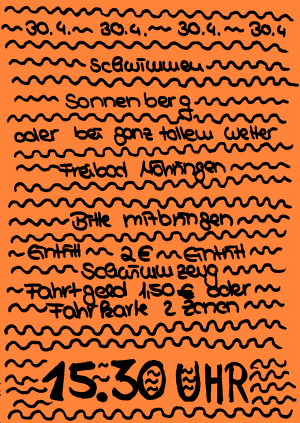 30.4. 30.4. 30.4. 30.4
schwimmen
Sonnenberg
oder bei ganz tollem Wetter
Freibad Möhringen
Bitte mitbringen
Eintritt 2€ Eintritt
Schwimmzeug
Fahrtgeld 1,50€ oder
Fahrkarte 2 Zonen
15.30 UHR